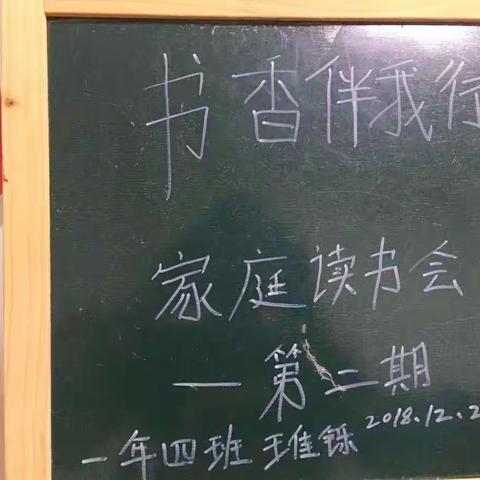 书香伴我行
家庭读书会
—第二期
一年四班 琟铄 2018.12.2